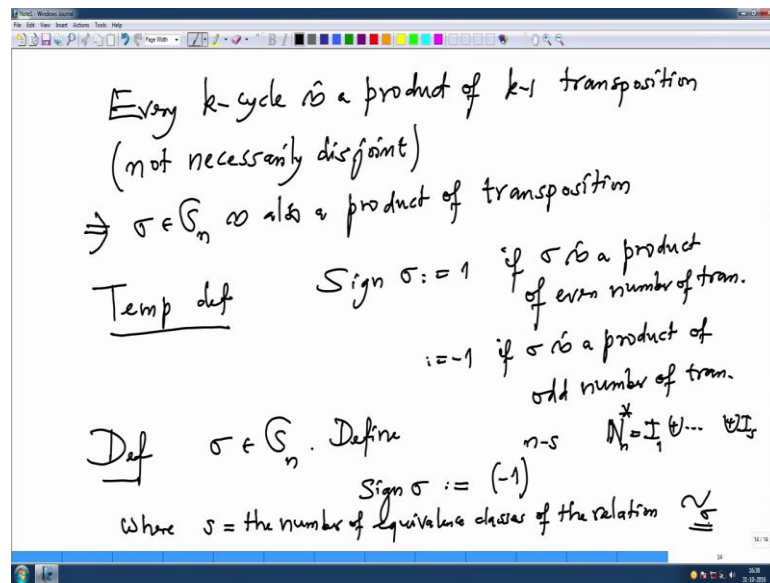 Note1 - Windows Journal
File Edit View Insert Actions Tools Help
Page Width
Every k-cycle is a product of k-1 transposition
(not necessarily disjoint)
⇒ σ ∈ 𝔖_n is also a product of transposition
Temp def Sign σ := 1 if σ is a product
of even number of tran.
:= -1 if σ is a product of
odd number of tran.
Def σ ∈ 𝔖_n. Define ℕ_n^* = I_1 ⊎ ... ⊎ I_s
Sign σ := (-1)^{n-s}
where s = the number of equivalence classes of the relation ~_σ
14/14
14
16:38
31-10-2016